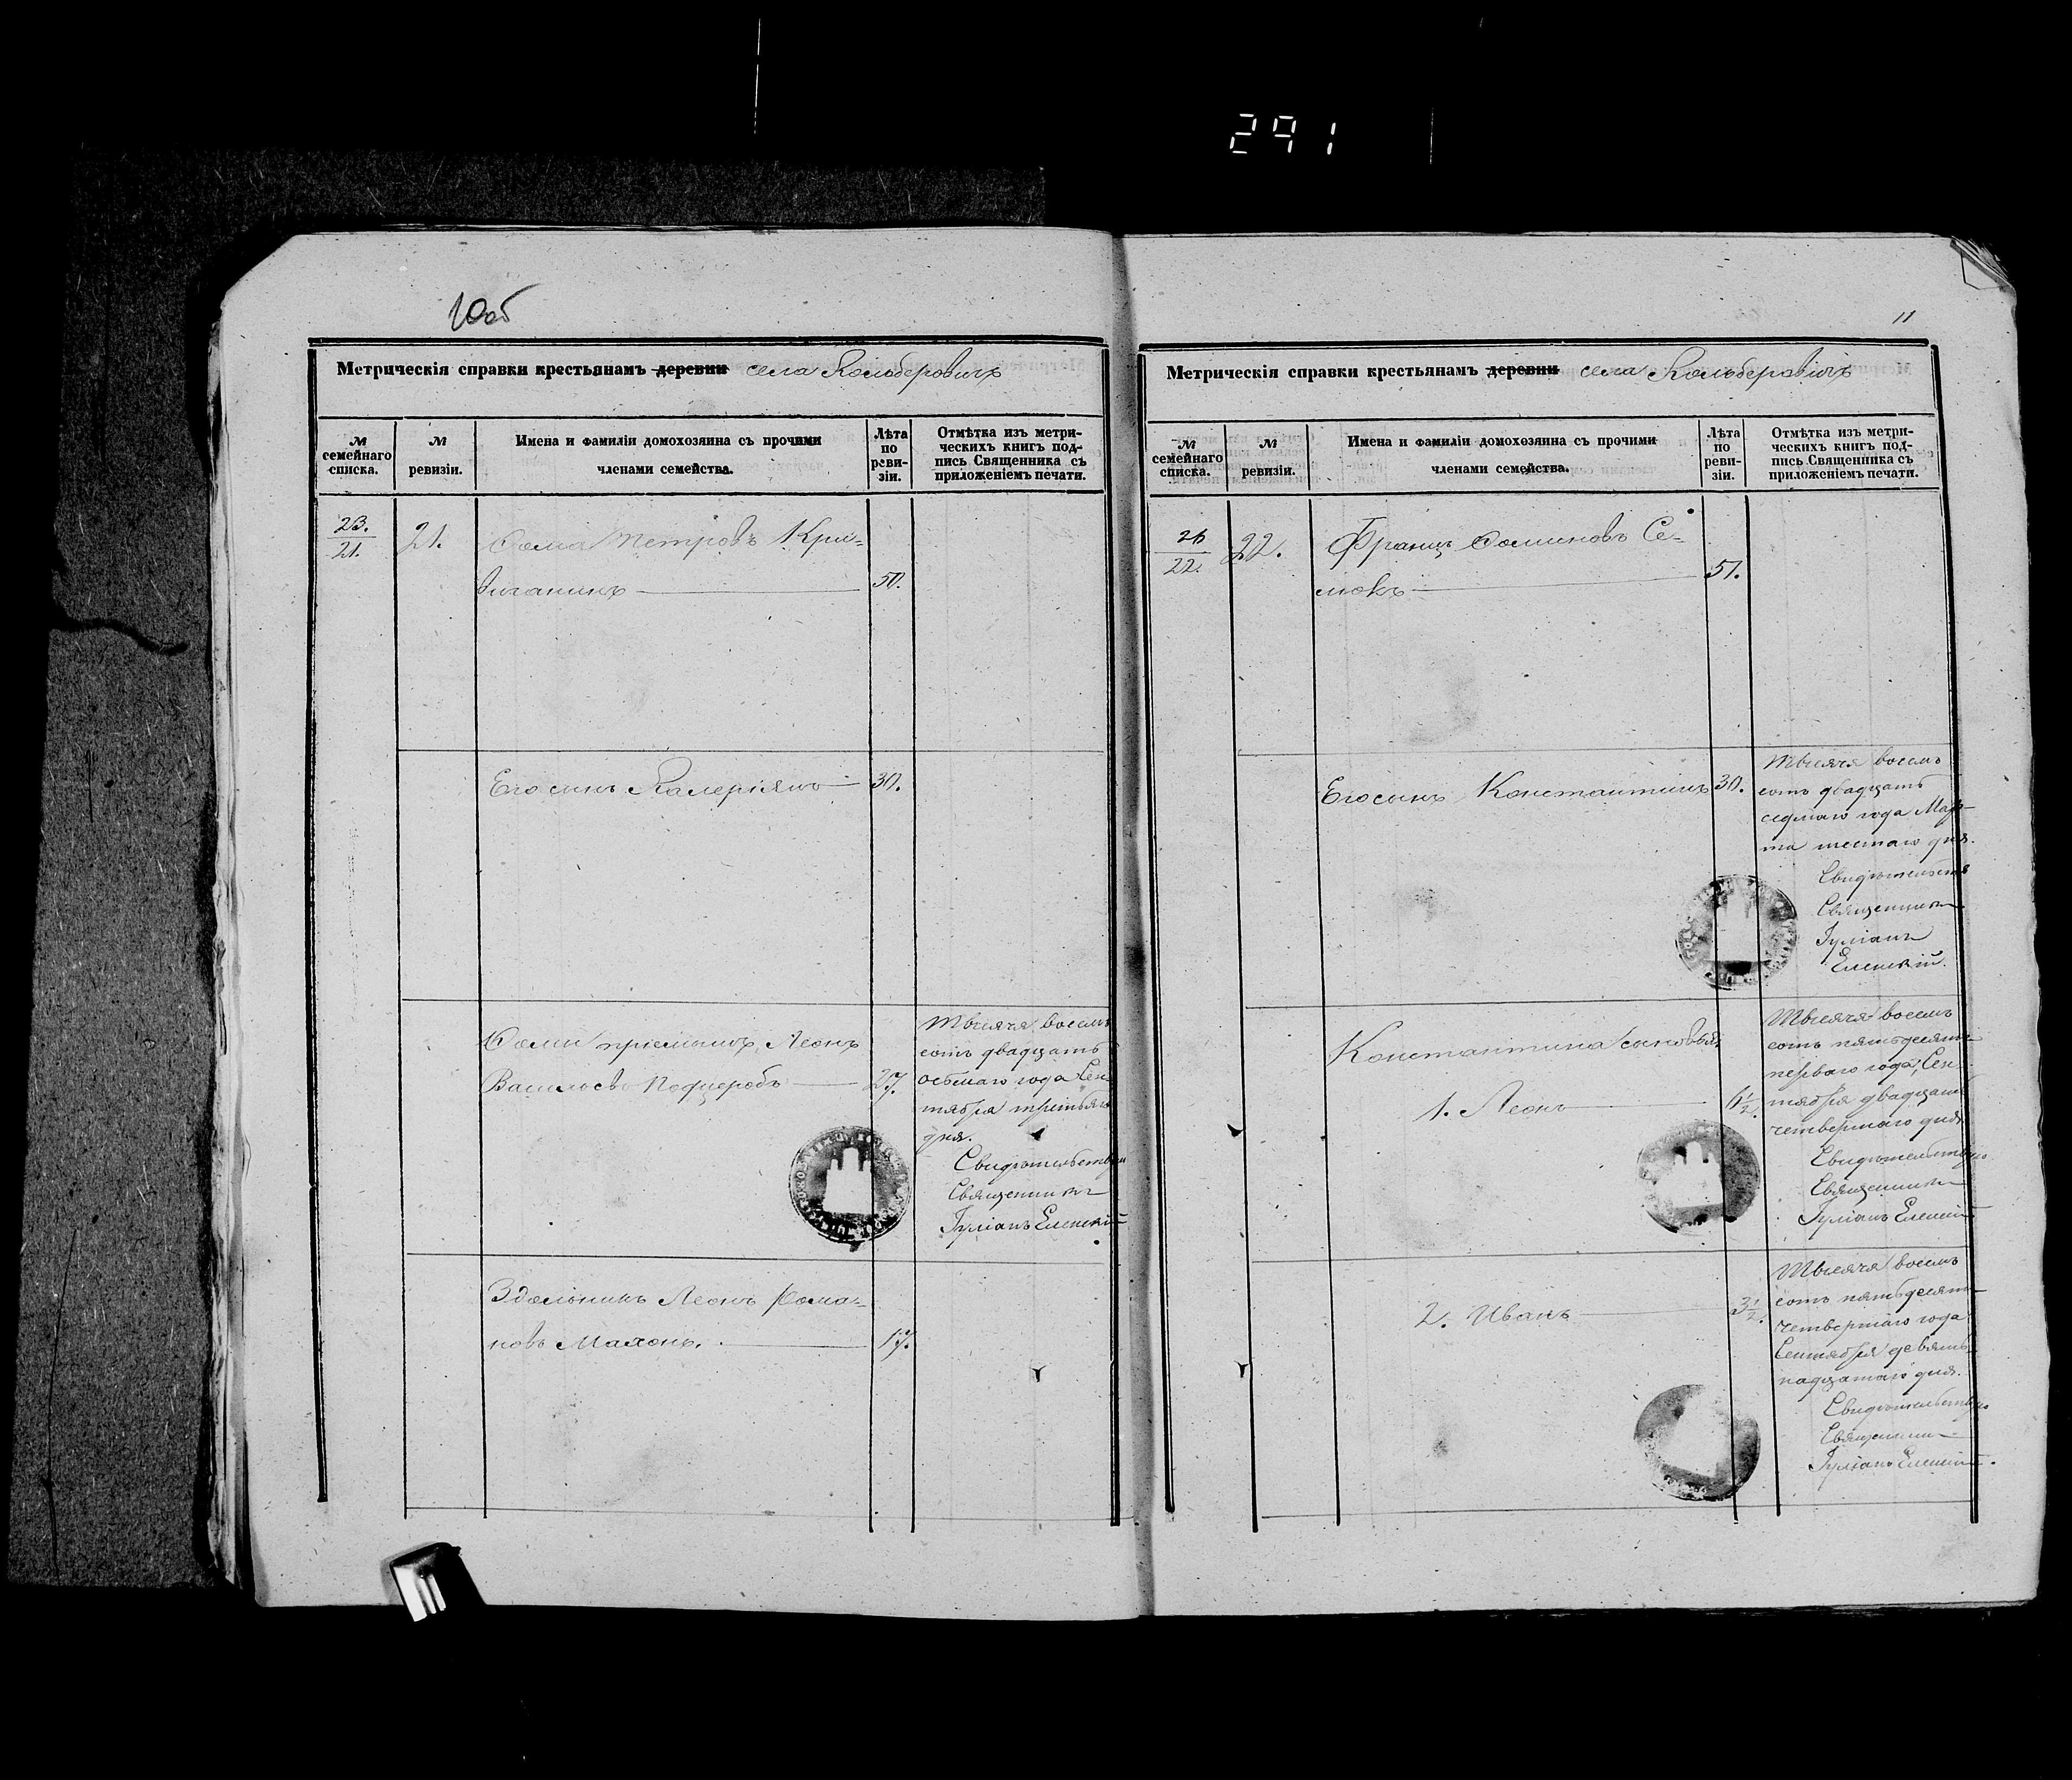 291
10об
Метрическія справки крестьянамъ деревни села Кольберовичъ
№ семейнаго списка.
№ ревизіи.
Имена и фамиліи домохозяина съ прочими членами семейства.
Лѣта по реви-зіи.
Отмѣтка изъ метри-
ческихъ книгъ под-
пись Священника съ
приложеніемъ печати.
23.
21.
21.
Сома Петровъ Кри-
50.
Его сынъ Валеріянъ
30.
Сомы пріемышъ, Леонъ
Васильевъ
27.
Тысяча восемь
сотъ двадцать
осьмаго года Сен-
тября третьяго
дня.
Свидѣтельствую
Священникъ
Іуліанъ Еленскій
Здольникъ Леонъ Рома-
новъ Махонь.
17.
11
Метрическія справки крестьянамъ деревни села Кольберовичъ
№ семейнаго списка.
№ ревизіи.
Имена и фамиліи домохозяина съ прочими членами семейства.
Лѣта по реви-зіи.
Отмѣтка изъ метри-
ческихъ книгъ под-
пись Священника съ
приложеніемъ печати.
22.
22.
Францъ Соминовъ Се-
мокъ
51.
Его сынъ Константинъ
30.
Тысяча восемь
сотъ двадцать
седмаго года Мар-
та шестаго дня.
Свидѣтельств
Священникъ
Іуліанъ
Еленскій.
Константина сыновья
1. Леонъ
6½.
Тысяча восемь
сотъ пятьдесятъ
перваго года, Сен-
тября двадцать
четвертаго дня
Свидѣтельствую
Священникъ
Іуліанъ Еленскій
2. Иванъ
3½.
Тысяча восемь
сотъ пятьдесятъ
четвертаго года
Сентября девять-
надцатаго дня.
Свидѣтельствую
Священникъ
Іуліанъ Еленскій.